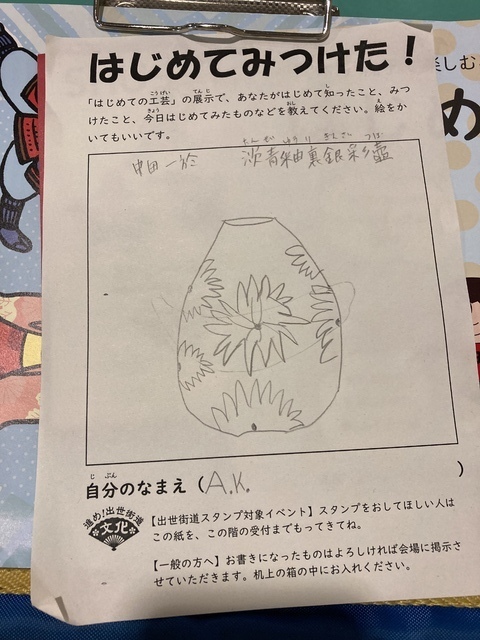 はじめてみつけた!
「はじめての工芸」の展示で、あなたがはじめて知ったこと、みつ
けたこと、今日はじめてみたものなどを教えてください。絵をか
いてもいいです。
中田一於 淡青釉裏銀彩壺
自分のなまえ (A.K. )
進め!出世街道
文化
【出世街道スタンプ対象イベント】スタンプをおしてほしい人は
この紙を、この階の受付までもってきてね。
【一般の方へ】お書きになったものはよろしければ会場に掲示さ
せていただきます。机上の箱の中にお入れください。
楽しむ
め